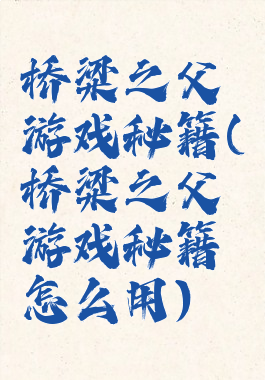 桥梁之父
游戏秘籍(
桥梁之父
游戏秘籍
怎么用)